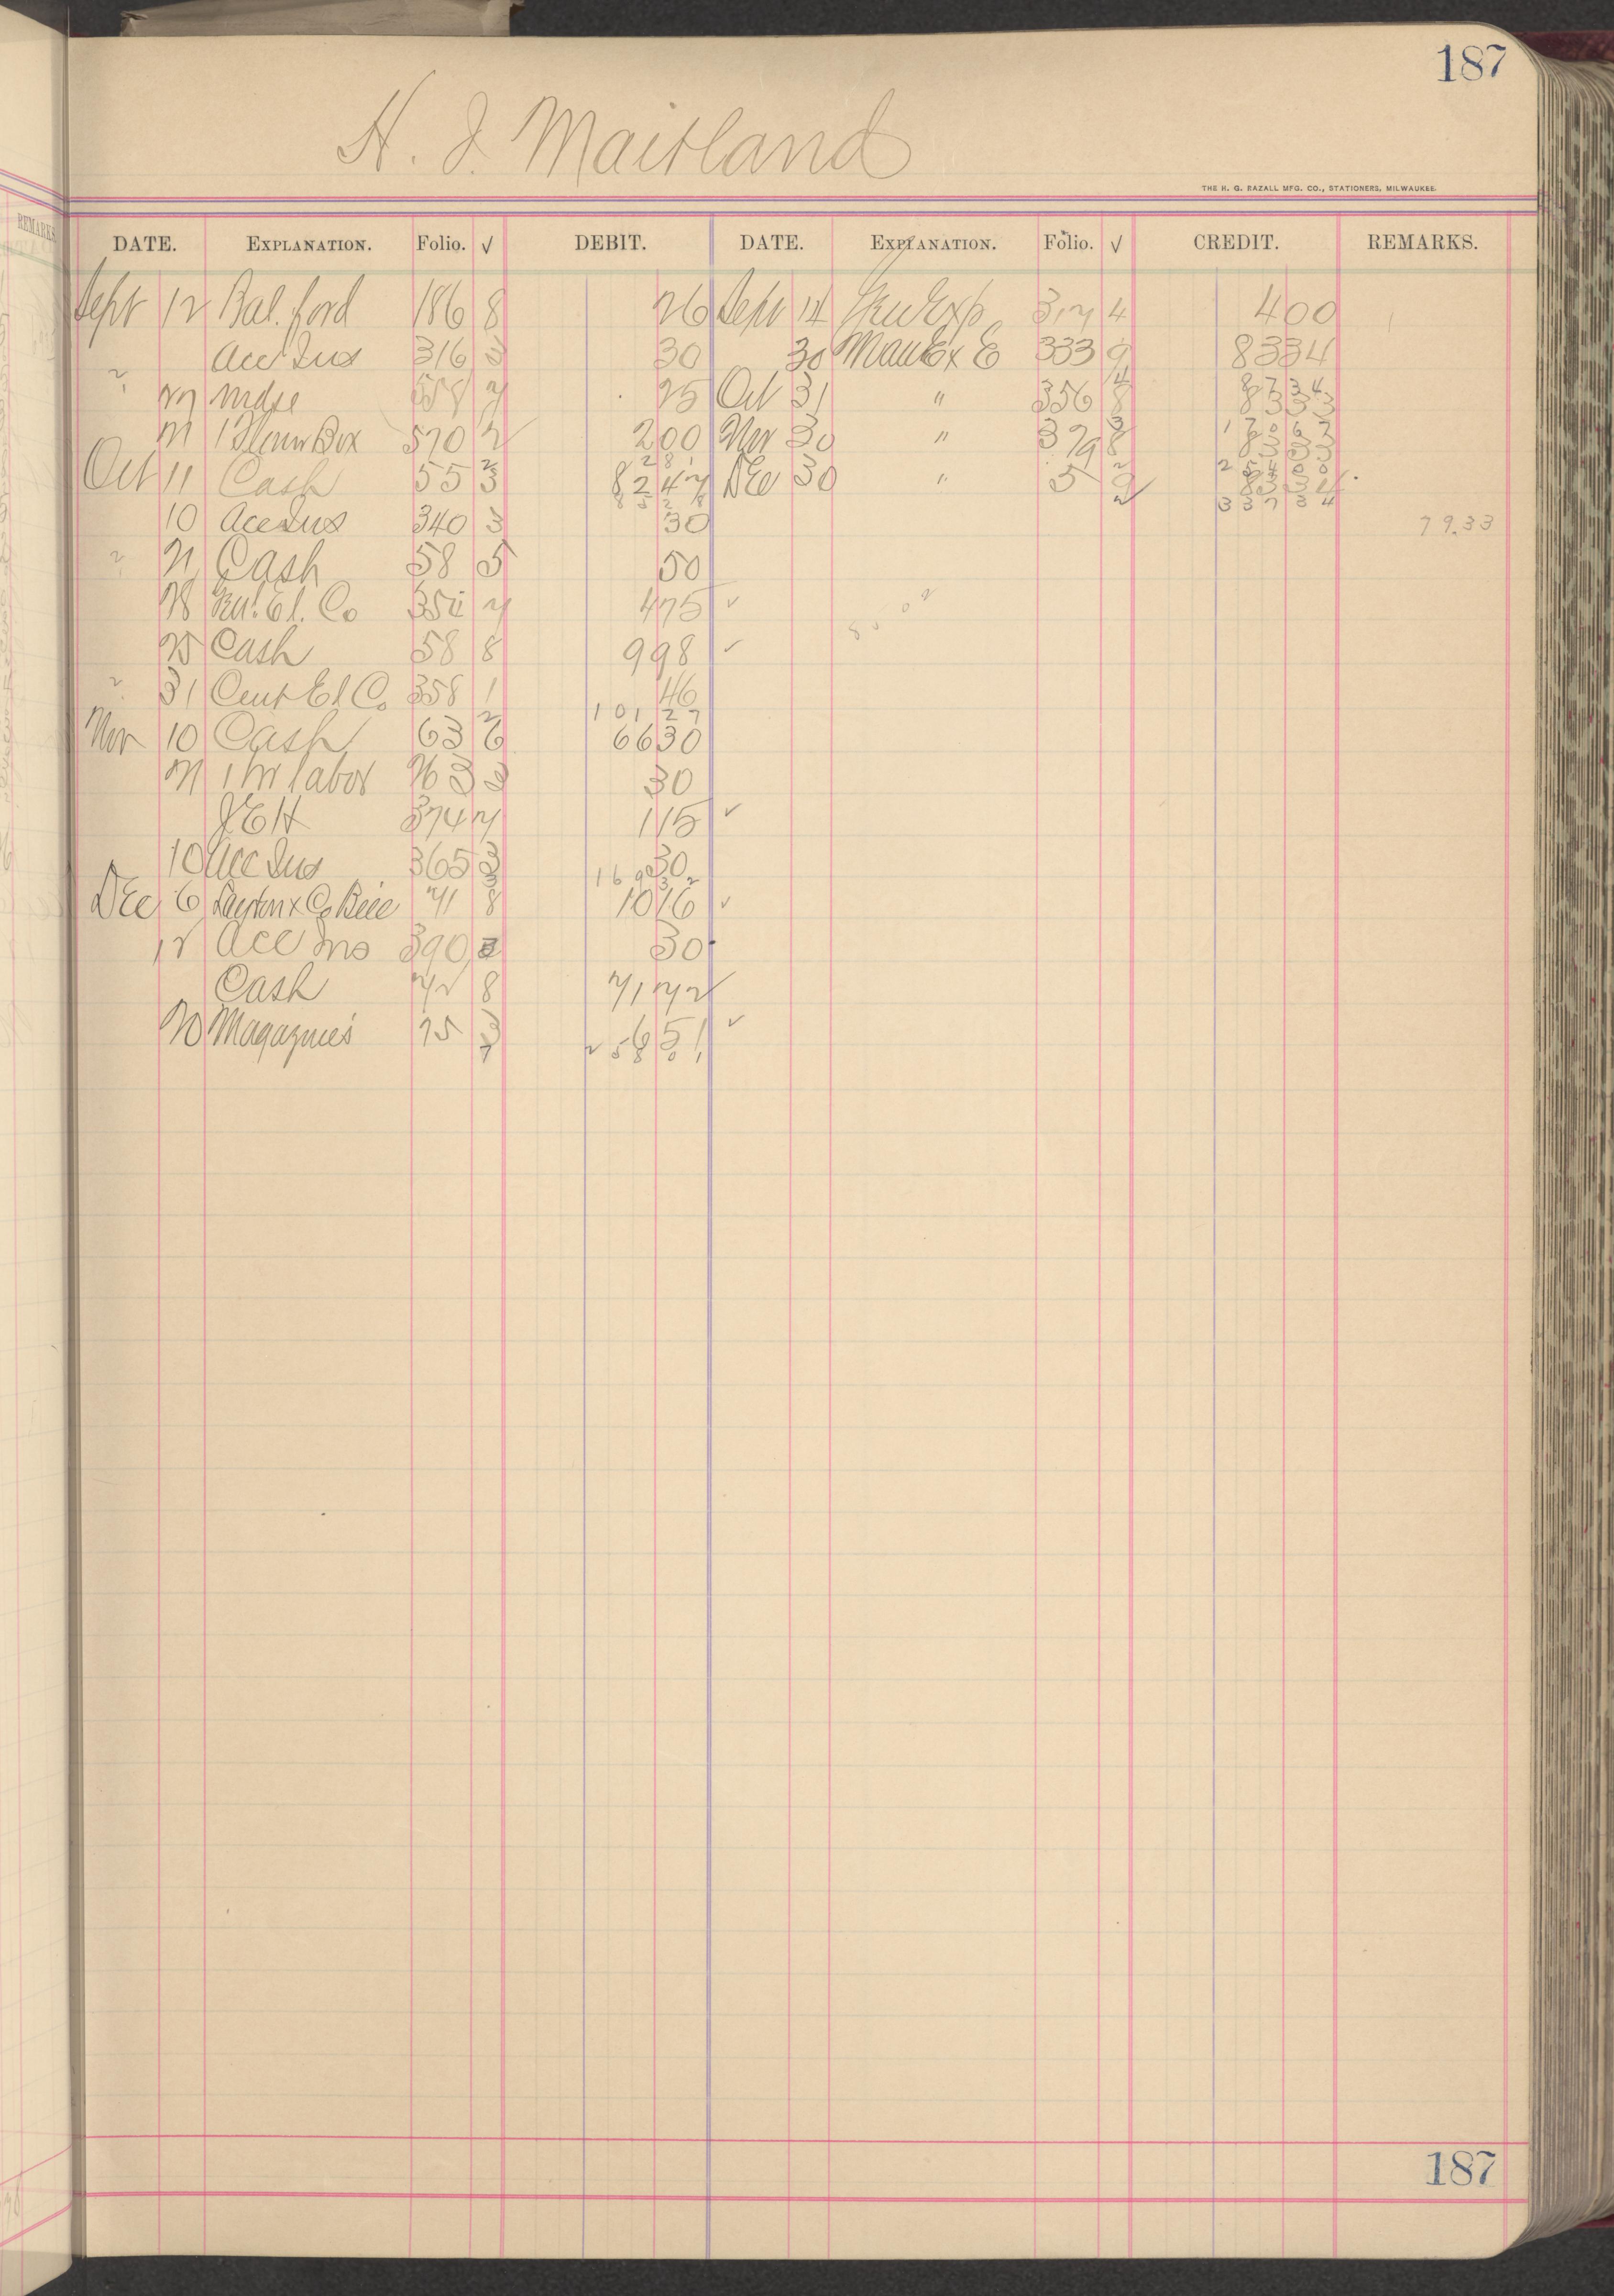 187
H. J. Maitland
THE H. G. RAZALL MFG. CO., STATIONERS, MILWAUKEE.
REMARKS
DATE. EXPLANATION. Folio. √ DEBIT. DATE. EXPLANATION. Folio. √ CREDIT. REMARKS.
Sept 12 Bal. ford 186 8 26 Sept 14 Exp 317 4 400
Acc Ins 316 3 30 30 Man Ex E 333 9 8334
27 Mdse 558 7 25 Oct 31 " 356 8 8333
8734
21 1 Box 570 2 200 Nov 30 " 379 8 8333
17067
281
Oct 11 Cash 55 3 8247 Dec 30 " 5 9 8334
25400
8528
33734
10 Acc Ins 340 3 30
79.33
21 Cash 58 5 50
28 El. Co 7 475 ✓
25 Cash 58 8 998 ✓
31 Cent El Co 358 1 46
10127
Nov 10 Cash 63 6 6630
21 1 hr labor 263 3 30
J E H 374 7 115 ✓
10 Acc Ins 365 3 30
16932
Dec 6 Layton & Co Bill 71 8 1016 ✓
12 Acc Ins 390 3 30
Cash 72 8 7172
20 Magazines 75 3 651 ✓
25801
187